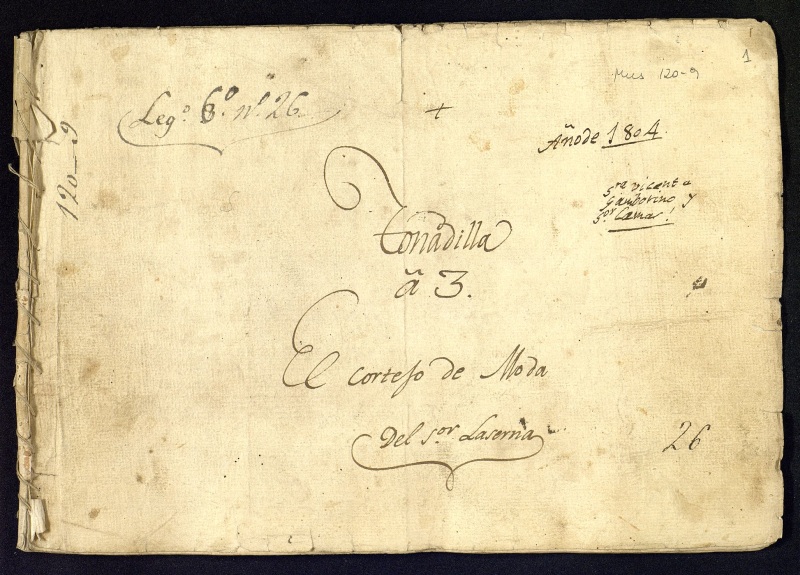 1
Mus 120-9
Leg.º 6.º n.º 26.
+
Año de 1804.
120-9
S.ra Vicenta
Gamborino, y
S.or Camas!
Tonadilla
â 3.
El Cortejo de Moda
Del S.or Laserna
26